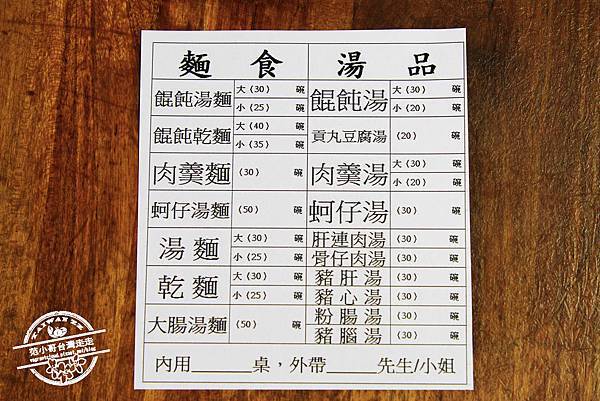 麵食 湯品
餛飩湯麵 大(30) 碗 小(25) 碗 餛飩湯 大(30) 碗 小(20) 碗
餛飩乾麵 大(40) 碗 小(35) 碗 貢丸豆腐湯 (20) 碗
肉羹麵 (30) 碗 肉羹湯 大(30) 碗 小(20) 碗
蚵仔湯麵 (50) 碗 蚵仔湯 (30) 碗
湯麵 大(30) 碗 小(25) 碗 肝連肉湯 (30) 碗
骨仔肉湯 (30) 碗
乾麵 大(30) 碗 小(25) 碗 豬肝湯 (30) 碗
豬心湯 (30) 碗
大腸湯麵 (50) 碗 粉腸湯 (30) 碗
豬腦湯 (30) 碗
內用______桌，外帶_____先生/小姐
范小哥台灣走走